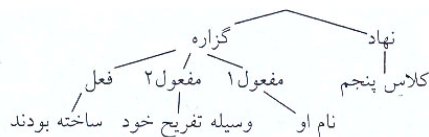 نهاد گزاره
کلاس پنجم مفعول۱ مفعول۲ فعل
نام او وسیله تفریح خود ساخته بودند